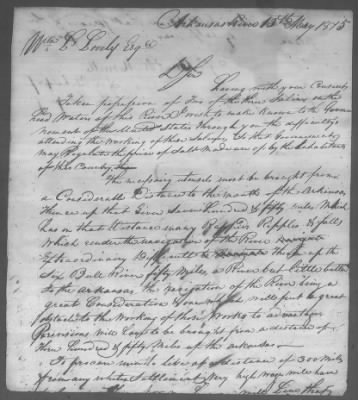 Arkansas River 15th May 1815
Wm L Lovely Esqr
D Sir
Having with your Consent
Taken possession of Two of the three Salines on the
Head Waters of this River I wish to make known to the Govern
ment of the United States through you the difficulty
attending the Working of these Salines, so that Government
may Regulate the price of Salt Made use of by the Inhabitants
of this Country
The necessary utensils must be brought from
a Considerable Distance to the mouth of the Arkansas
thence up that River Seven hundred & fifty miles Which
has in that Distance many Ripples & falls
Which render the navigation of the River
Extraordinary Difficult to Thence up the
Six Bull River fifty Miles a River but little better
to the arkansas the navigation of this River being a
great Consideration & one which will put a great
obstacle to the Working of those Works to an
Provisions will have to be brought from a distance of
three hundred & fifty Miles up the arkansas
To procure hands to live at a distance of 300 Miles
from any white Settlement Very high wages will have